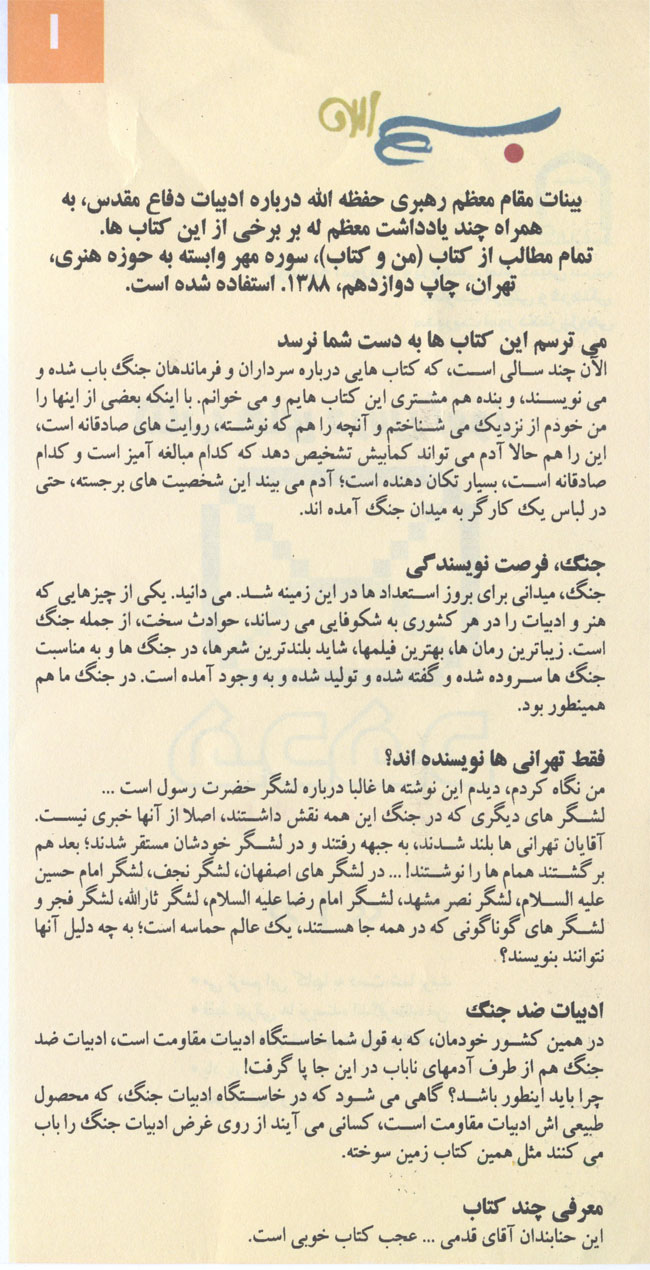 ۱
بسم الله
بینات مقام معظم رهبری حفظه الله درباره ادبیات دفاع مقدس، به
همراه چند یادداشت معظم له بر برخی از این کتاب ها.
تمام مطالب از کتاب (من و کتاب)، سوره مهر وابسته به حوزه هنری،
تهران، چاپ دوازدهم، ۱۳۸۸. استفاده شده است.
می ترسم این کتاب ها به دست شما نرسد
الآن چند سالی است، که کتاب هایی درباره سرداران و فرماندهان جنگ باب شده و
می نویسند، و بنده هم مشتری این کتاب هایم و می خوانم. با اینکه بعضی از اینها را
من خودم از نزدیک می شناختم و آنچه را هم که نوشته، روایت های صادقانه است،
این را هم حالا آدم می تواند کمابیش تشخیص دهد که کدام مبالغه آمیز است و کدام
صادقانه است، بسیار تکان دهنده است؛ آدم می بیند این شخصیت های برجسته، حتی
در لباس یک کارگر به میدان جنگ آمده اند.
جنگ، فرصت نویسندگی
جنگ، میدانی برای بروز استعداد ها در این زمینه شد. می دانید. یکی از چیزهایی که
هنر و ادبیات را در هر کشوری به شکوفایی می رساند، حوادث سخت، از جمله جنگ
است. زیباترین رمان ها، بهترین فیلمها، شاید بلندترین شعرها، در جنگ ها و به مناسبت
جنگ ها سروده شده و گفته شده و تولید شده و به وجود آمده است. در جنگ ما هم
همینطور بود.
فقط تهرانی ها نویسنده اند؟
من نگاه کردم، دیدم این نوشته ها غالبا درباره لشگر حضرت رسول است ...
لشگر های دیگری که در جنگ این همه نقش داشتند، اصلا از آنها خبری نیست.
آقایان تهرانی ها بلند شدند، به جبهه رفتند و در لشگر خودشان مستقر شدند؛ بعد هم
برگشتند همام ها را نوشتند! ... در لشگر های اصفهان، لشگر نجف، لشگر امام حسین
علیه السلام، لشگر نصر مشهد، لشگر امام رضا علیه السلام، لشگر ثارالله، لشگر فجر و
لشگر های گوناگونی که در همه جا هستند، یک عالم حماسه است؛ به چه دلیل آنها
نتوانند بنویسند؟
ادبیات ضد جنگ
در همین کشور خودمان، که به قول شما خاستگاه ادبیات مقاومت است، ادبیات ضد
جنگ هم از طرف آدمهای ناباب در این جا پا گرفت!
چرا باید اینطور باشد؟ گاهی می شود که در خاستگاه ادبیات جنگ، که محصول
طبیعی اش ادبیات مقاومت است، کسانی می آیند از روی غرض ادبیات جنگ را باب
می کنند مثل همین کتاب زمین سوخته.
معرفی چند کتاب
این حنابندان آقای قدمی ... عجب کتاب خوبی است.